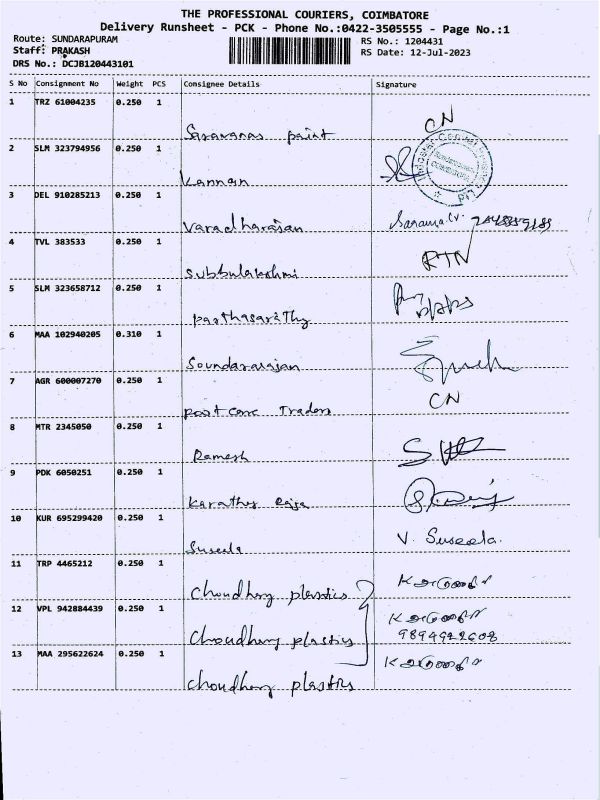 THE PROFESSIONAL COURIERS, COIMBATORE
Delivery Runsheet - PCK - Phone No.:0422-3505555 - Page No.:1
Route: SUNDARAPURAM
RS No.: 1204431
Staff: PRAKASH
RS Date: 12-Jul-2023
DRS No.: DCJB120443101
S No Consignment No Weight PCS Consignee Details Signature
1 TRZ 61004235 0.250 1
CN
Saravanas paint
2 SLM 323794956 0.250 1
Kannan
3 DEL 910285213 0.250 1
Varadharajan
4 TVL 383533 0.250 1
RTN
Subbulakshmi
5 SLM 323658712 0.250 1
Parthasarathy
6 MAA 102940205 0.310 1
Soundararajan
7 AGR 600007270 0.250 1
CN
Traders
8 MTR 2345050 0.250 1
Ramesh
9 PDK 6050251 0.250 1
Raja
10 KUR 695299420 0.250 1
V. Suseela.
Suseela
11 TRP 4465212 0.250 1
Choudhary plastics
12 VPL 942884439 0.250 1
Choudhary plastics
13 MAA 295622624 0.250 1
Choudhary plastics